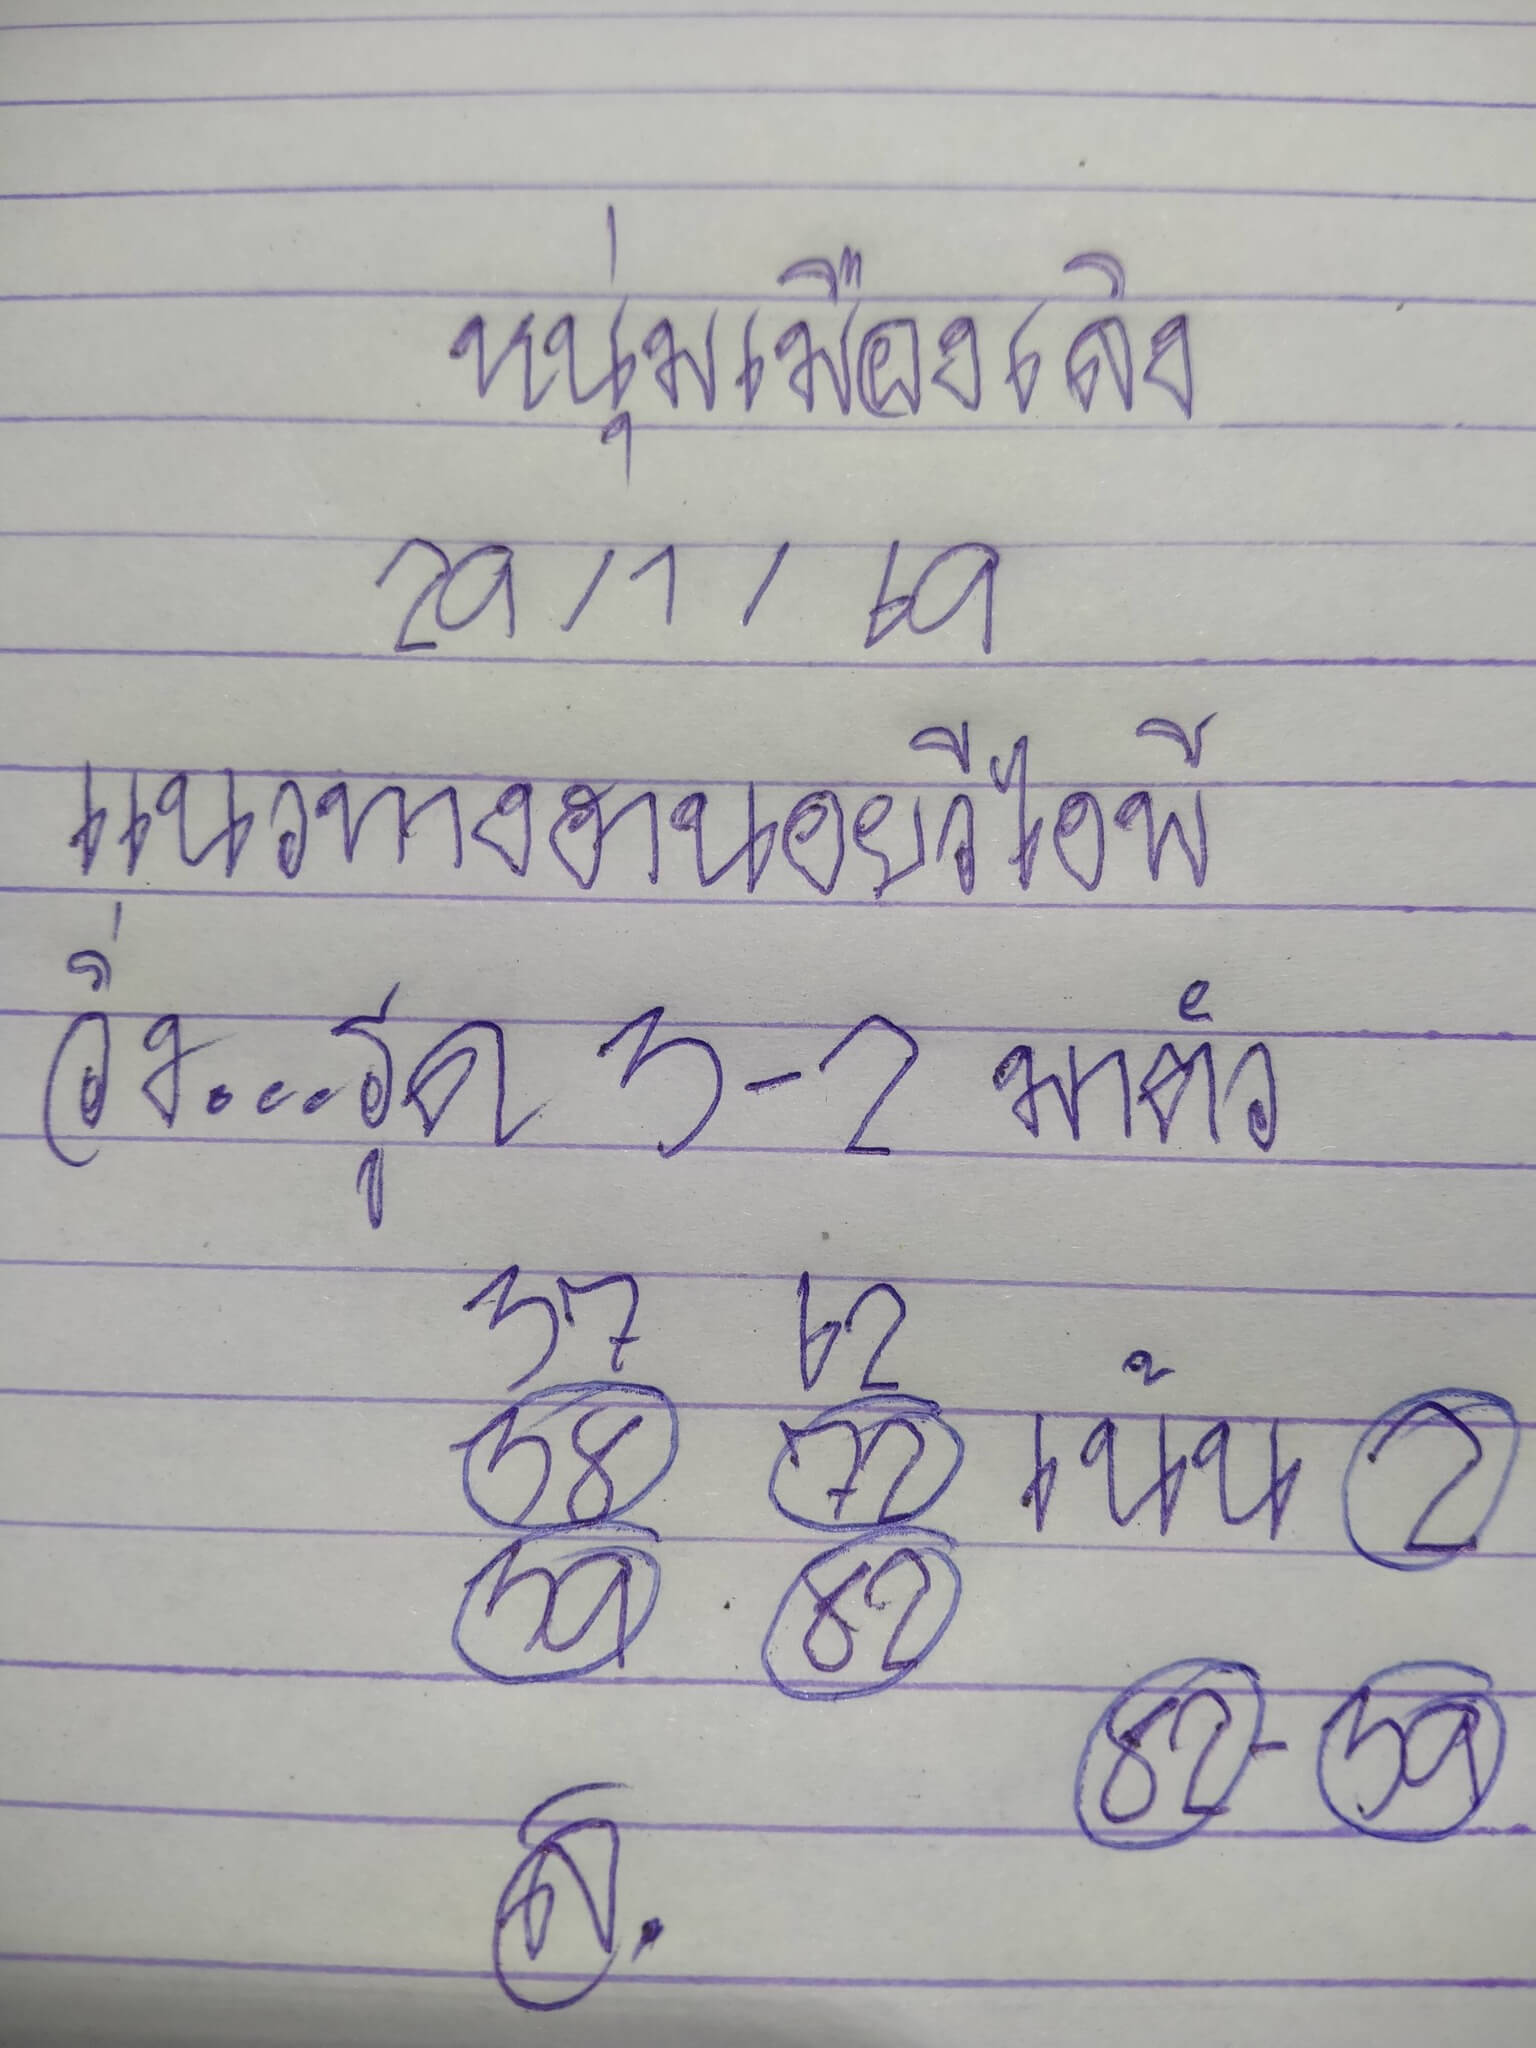 หนุ่มเมืองเลิง
29/1/69
แนวทางฮานอยวีไอพี
วิ่ง....รูด 3-2 มาตัว
37 62
38 72 เน้น 2
39 82
82-39